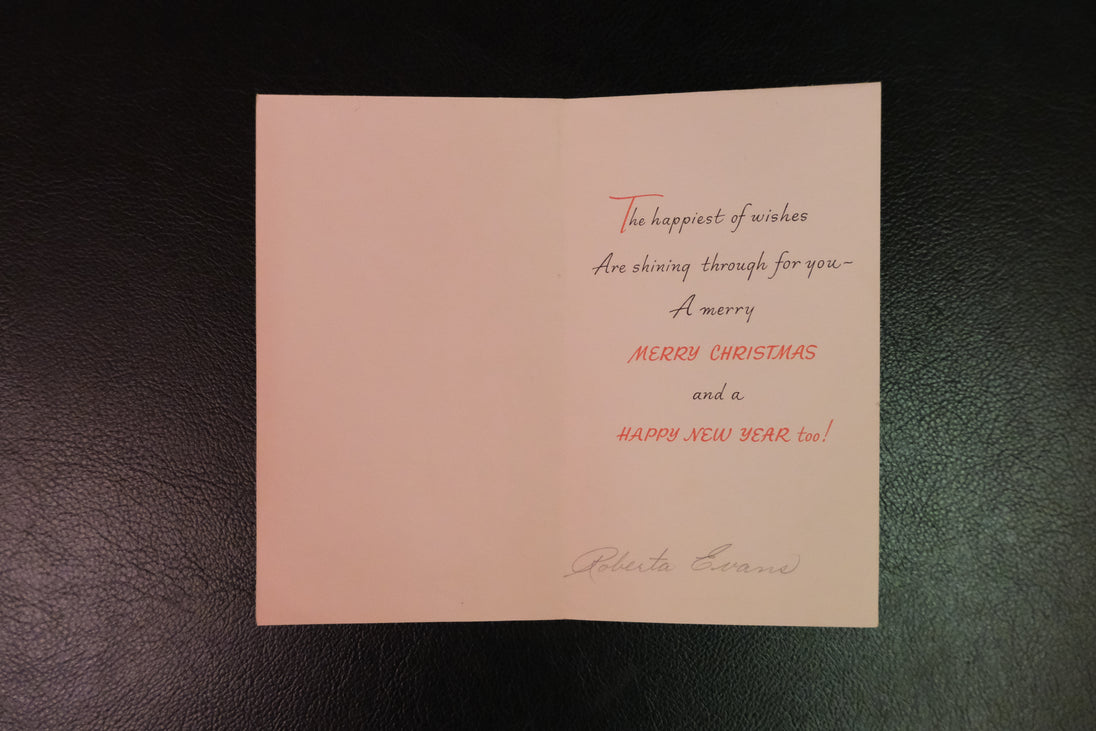 The happiest of wishes
Are shining through for you~
A merry
MERRY CHRISTMAS
and a
HAPPY NEW YEAR too!
Roberta Evans